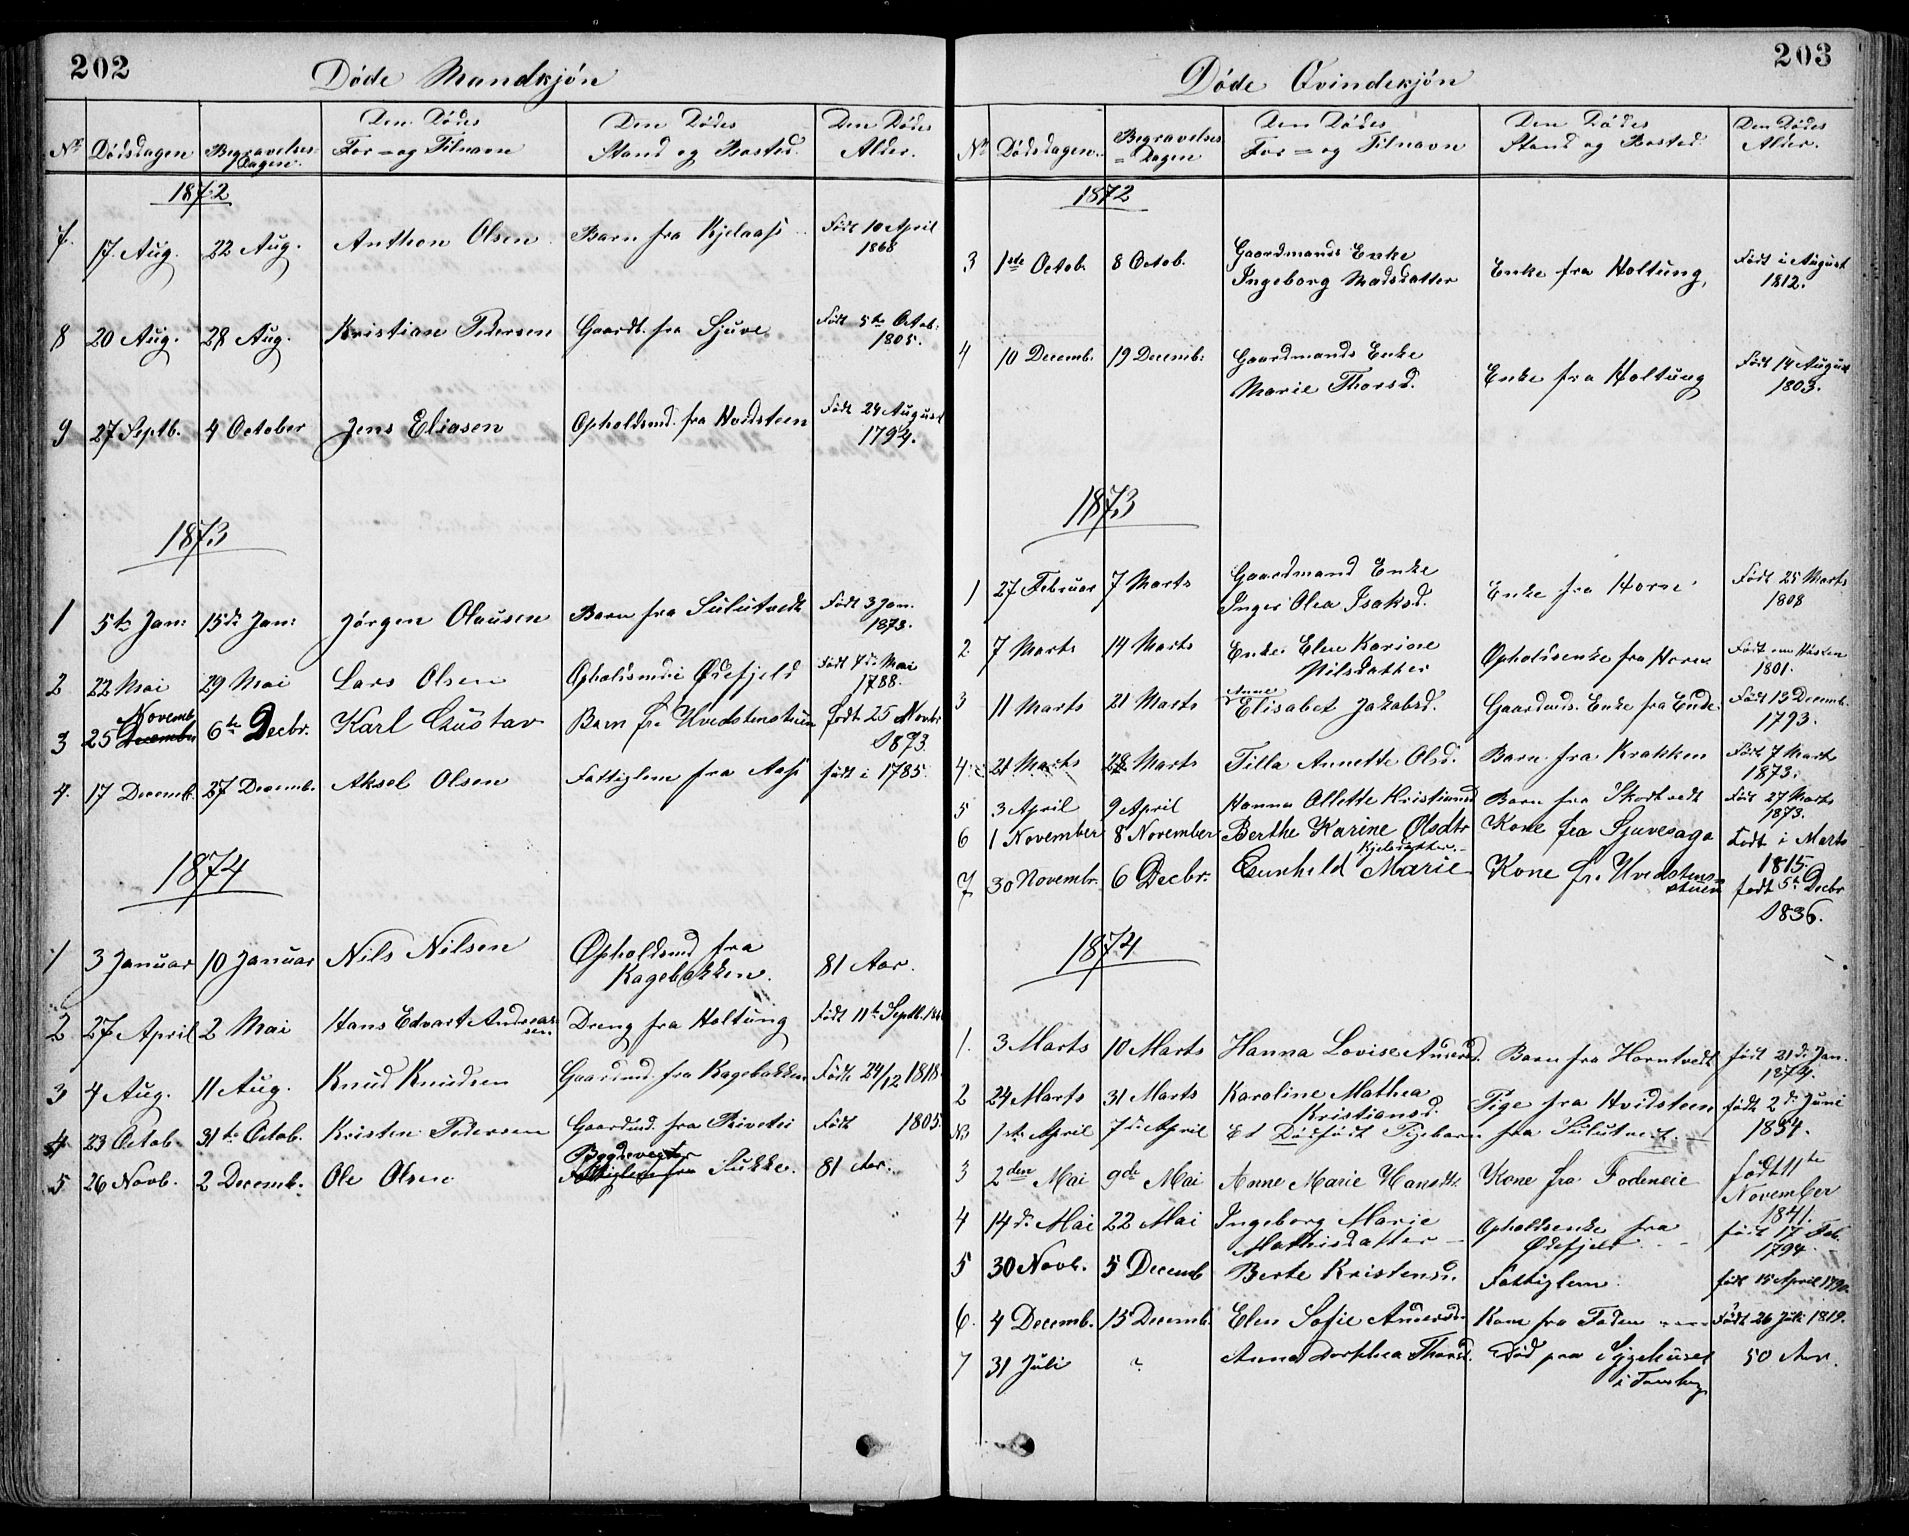 202
Døde Mandkjøn
Nr Dødsdagen Begravelses-Dagen. Den Dødes For- og Tilnavn Den Dødes Stand og Bosted. Den Dødes Alder.
1872
7. 17. Aug. 22 Aug. Anthon Olsen Barn fra Kjelaas Født 10 April 1868
8 20 Aug. 28 Aug. Kristian Pedersen Gaardt. fra Sjuve Født 5te Octob: 1805.
9 27 Septb. 4 October Jens Eliasen Opholdsmd. fra Hvidsteen Født 24 August 1794.
1873
1 5te Jan: 15de Jan: Jørgen Olausen Barn fra Sulutvedt Født 3 Jan. 1873.
2 22 Mai 29 Mai Lars Olsen Opholdsmd i Ødefjeld Født 7de Mai 1788.
3 25 Novemb. Decembr 6te Decbr. Karl Gustav Barn fr. Hvedstenstuen født 25 Novbr 1873.
4. 17 Decemb. 27 Decemb. Aksel Olsen Fattiglem fra Aas født i 1785.
1874
1 3 Januar 10 Januar Nils Nilsen Opholdsmd fra Kagebakken. 81 Aar.
2 27 April 2 Mai Hans Edvart Andreassen Dreng fra Holtung Født 11te Septb.
3 4 Aug. 11 Aug. Knud Knudsen Gaardmd. fra Kagebakken Født 24/12 1818
4 23 Octob. 31te Octob. Kristen Pedersen Gaardmd. fra Rivetei Født 1805.
5 26 Novb. 2 Decemb. Ole Olsen Bygdevegter Fattiglem fra Sukke. 81 Aar.
203
Døde Qvindekjøn
Nr Dødsdagen. Begravelses-Dagen Den Dødes For- og Tilnavn Den Dødes Stand og Bosted. Den Dødes Alder.
1872
3 1ste Octob. 8 Octob. Gaardmands Enke Ingeborg Madsdatter Enke fra Holtung, Født i August 1812.
4 10 Decemb. 19 Decemb: Gaardmands Enke Marie Thorsd. Enke fra Holtung Født 14 August 1803.
1873
1 27 Februar 7 Marts Gaardmand Enke Inger Olea Isaksd. Enke fra Horne Født 25 Marts 1808
2 7 Marts 14 Marts Enke Elen Karine Nilsdatter Opholdsenke fra Horne Født om Høsten 1801.
3 11 Marts 21 Marts Anne Elisabet Jakobsd. Gaardmds. Enke fra Ende. Født 13 Decemb. 1793.
4. 21 Marts 28 Marts Tilla Annette Olsd. Barn fra Krakken Født 7 Marts 1873.
5 3 April 9 April Hanna Ollette Kristiansd Barn fra Skottvedt Født 27 Marts 1873.
6 1 November 8 November Berthe Karine Olsdtr Kone fra Sjuvesaga Født i Marts 1815.
7 30 Novembr. 6 Decbr. Gunhild Marie Kjelsdatter Kone fr. Hvedstensstuen født 5te Decbr 1836.
1874
1. 3 Marts 10 Marts Hanna Lovise Andersd. Barn fra Horntvedt født 21de Jan. 1874.
2 24 Marts 31 Marts Karoline Mathea Kristiansd. Pige fra Hvidsteen født 2de Juni 1854.
No 1ste April 7de April Et Dødfødt Pigebarn fra Sulutvedt.
3 2den Mai 9de Mai Anne Marie Hansdtr. Kone fra Fodeneie født 11te November 1841.
4 14de Mai 22 Mai Ingeborg Marie Mathisdatter Opholdsenke fra Ødefjeld født 17 Feb. 1794.
5 30 Novb. 5 Decemb Berte Kristensd. Fattiglem født 15 April 1790.
6. 4 Decemb. 15 Decemb. Elen Sofie Andersdtr Kone fra Foden Født 26 Juli 1819.
7 31 Juli ? Anna Dorthea Thorsd. Død paa Sygehuset i Tønsberg 50 Aar.